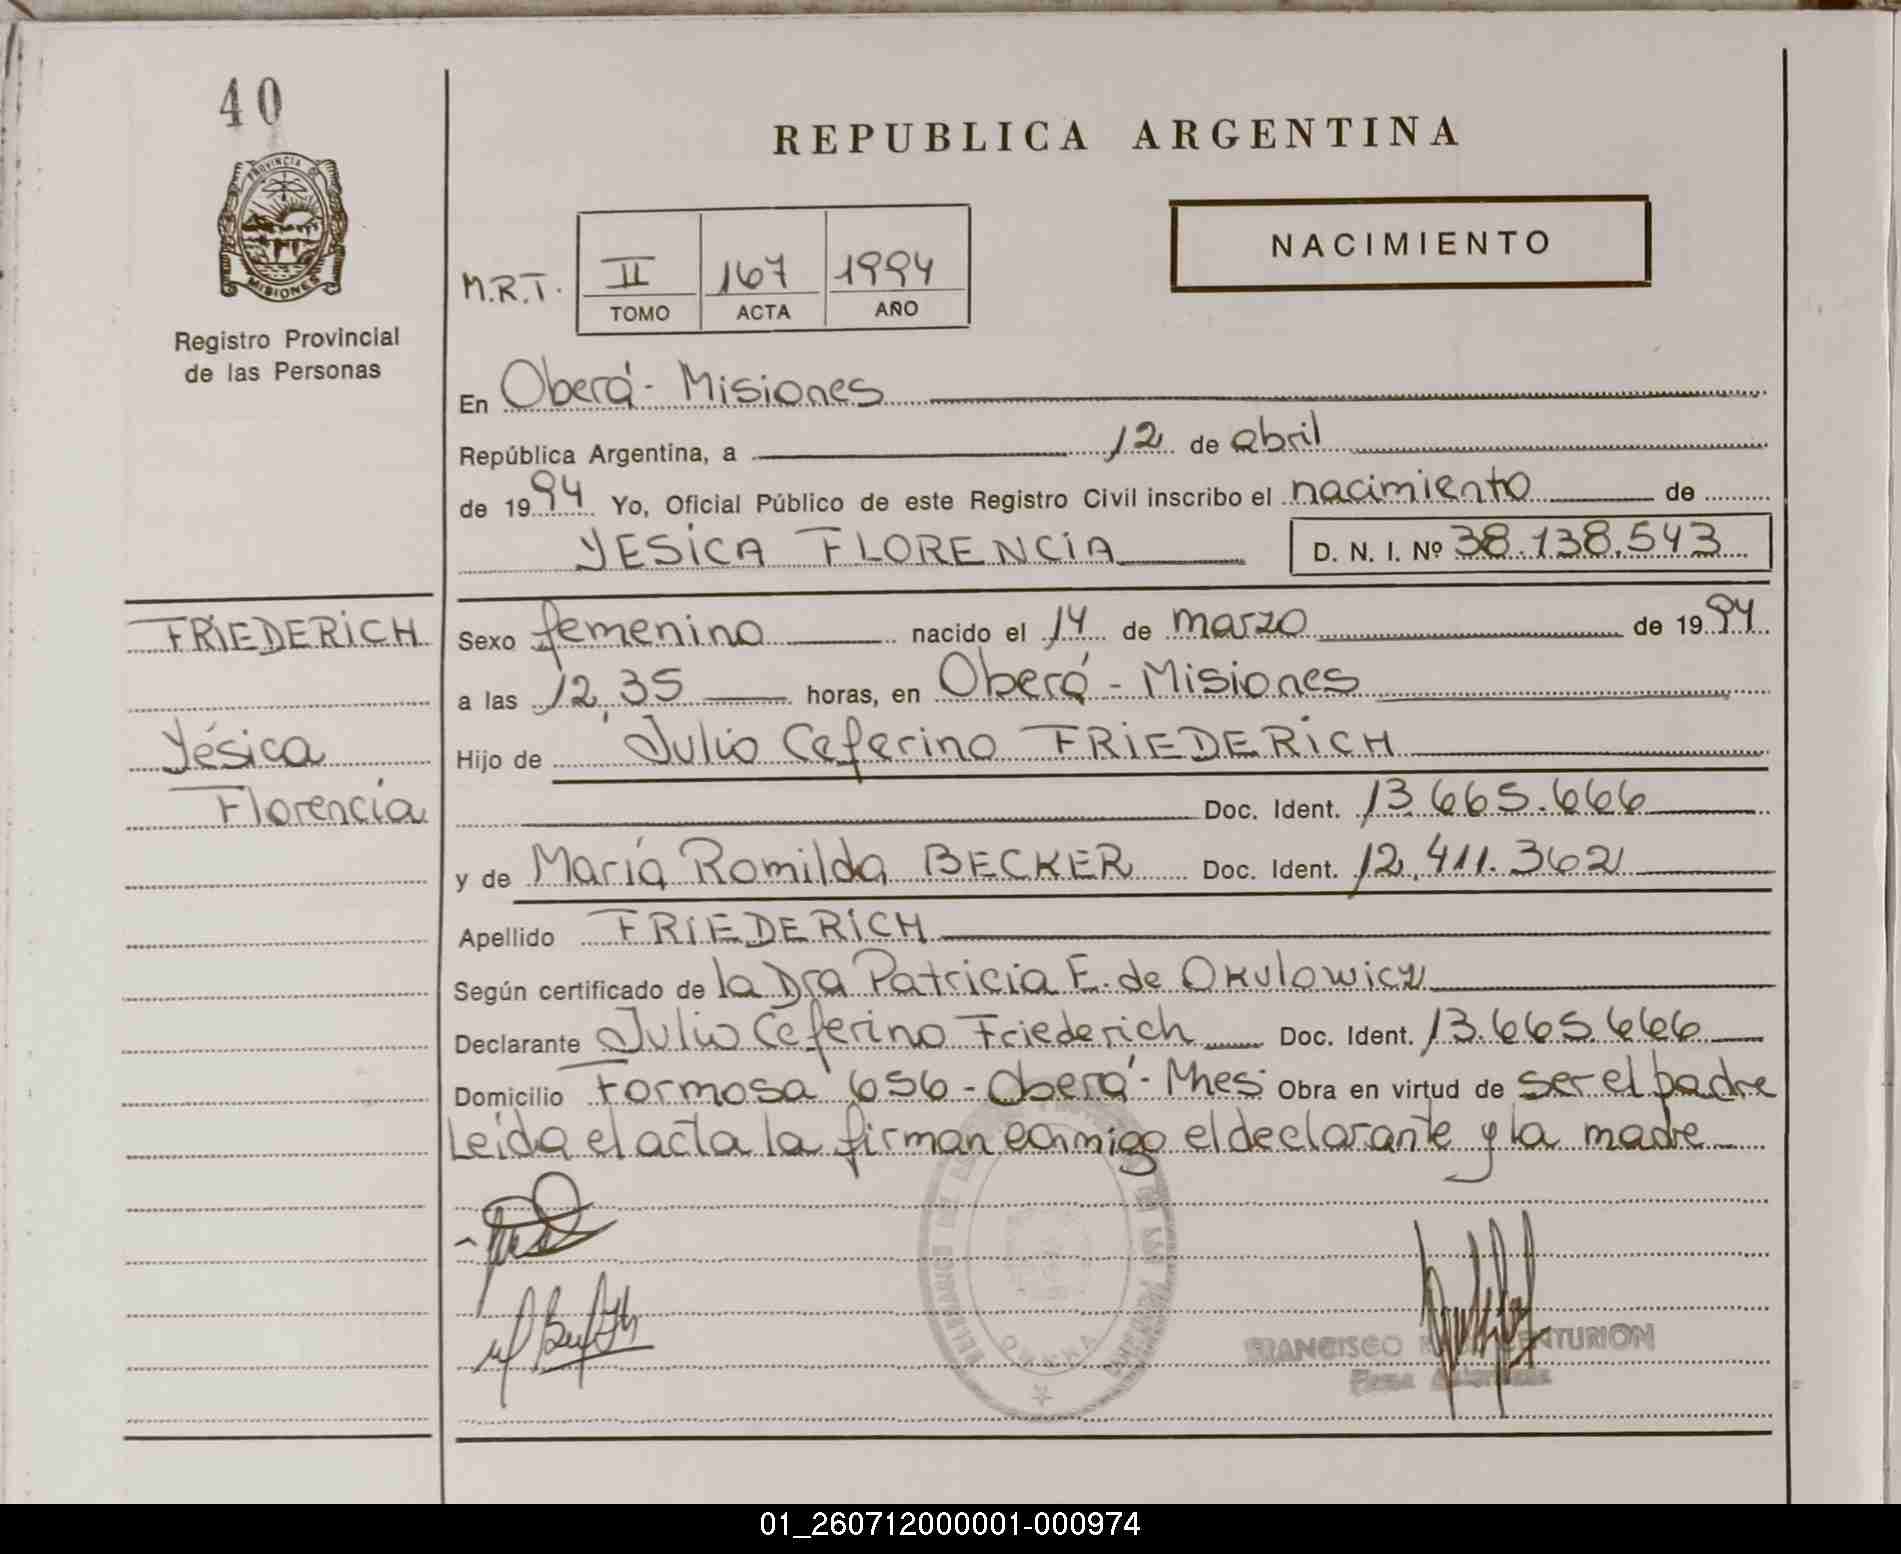 40
PROVINCIA
MISIONES
Registro Provincial
de las Personas
REPUBLICA ARGENTINA
NACIMIENTO
M.R.T. II 167 1994
TOMO ACTA AÑO
En Oberá - Misiones
República Argentina, a 12 de abril
de 1994 Yo, Oficial Público de este Registro Civil inscribo el nacimiento de
YESICA FLORENCIA D. N. I. Nº 38.138.543
FRIEDERICH
Yésica
Florencia
Sexo femenino nacido el 14 de marzo de 1994
a las 12,35 horas, en Oberá - Misiones
Hijo de Julio Ceferino FRIEDERICH
Doc. Ident. 13.665.666
y de María Romilda BECKER Doc. Ident. 12.411.362
Apellido FRIEDERICH
Según certificado de la Dra Patricia E. de Okulowicz
Declarante Julio Ceferino Friederich Doc. Ident. 13.665.666
Domicilio Formosa 656 - Oberá - Mnes Obra en virtud de ser el padre
Leída el acta la firman conmigo el declarante y la madre
FRANCISCO CENTURION
01_260712000001-000974